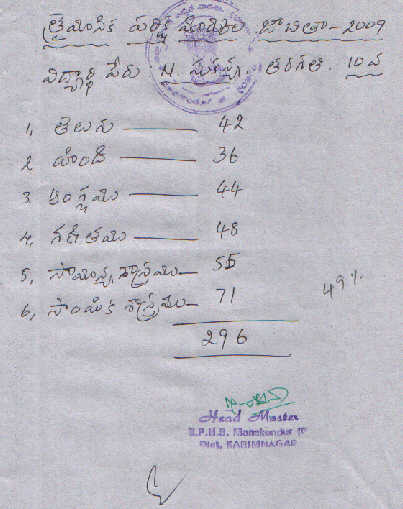 త్రైమాసిక పరీక్ష మార్కుల జాబితా - 2009
విద్యార్థి పేరు N. సుకన్య. తరగతి. 10వ
1, తెలుగు —— 42
2 హిందీ —— 36
3 ఆంగ్లము —— 44
4, గణితము —— 48
5, సామాన్య శాస్త్రము — 55
6, సాంఘిక శాస్త్రము — 71
49%
296
Head Master
Manakondur
Dist, KARIMNAGAR